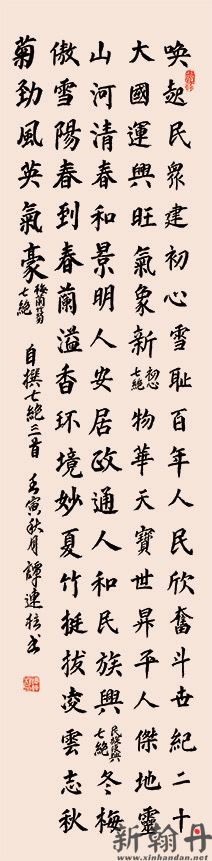 喚起民衆建初心雪恥百年人民欣奮斗世紀二十
大國運興旺氣象新初心七絶物華天寶世昇平人傑地靈
山河清春和景明人安居政通人和民族興民族復興七絶冬梅
傲雪陽春到春蘭溢香环境妙夏竹挺拔凌雲志秋
菊勁風英氣豪梅蘭竹菊七絶自撰七絶三首壬寅秋月譚連书
新翰丹
www.xinhandan.net